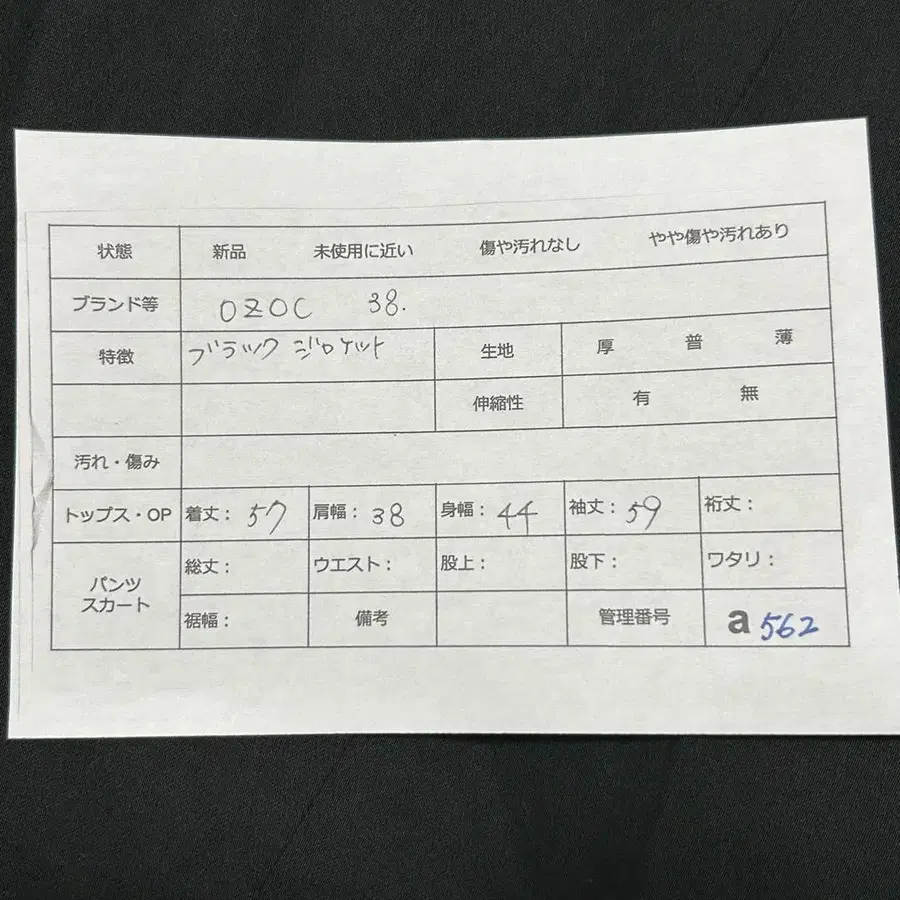 状態 新品 未使用に近い 傷や汚れなし やや傷や汚れあり
ブランド等 OZOC 38.
特徴 ブラック ジャケット 生地 厚 普 薄
伸縮性 有 無
汚れ・傷み
トップス・OP 着丈: 57 肩幅: 38 身幅: 44 袖丈: 59 裄丈:
パンツ スカート 総丈: ウエスト: 股上: 股下: ワタリ:
裾幅: 備考 管理番号 a 562